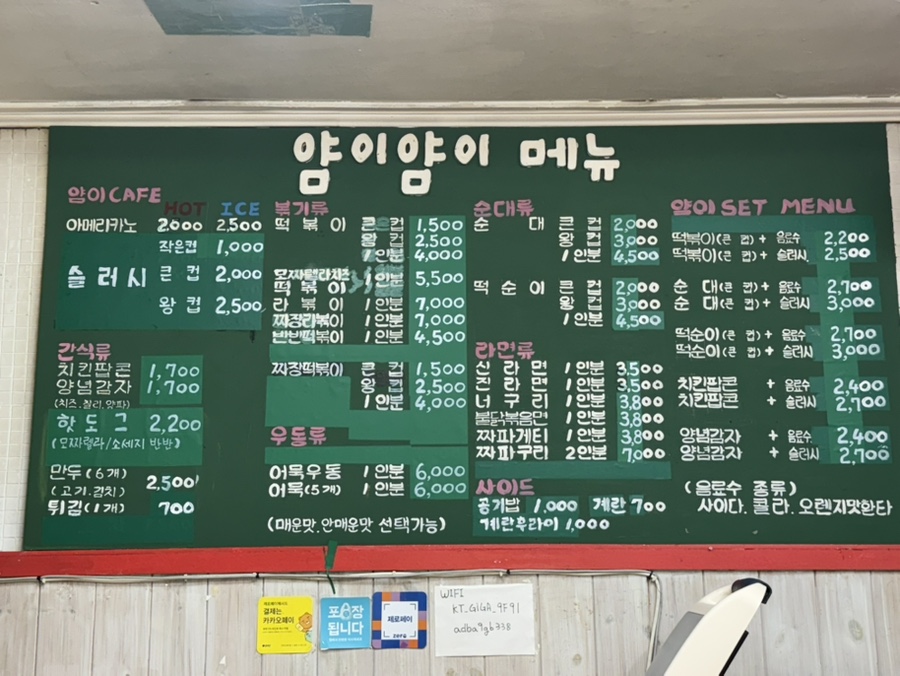 얌이얌이 메뉴
얌이CAFE
HOT ICE
아메리카노 2,000 2,500
작은컵 1,000
슬러시 큰 컵 2,000
왕 컵 2,500
간식류
치킨팝콘 1,700
양념감자 1,700
(치즈.칠리.양파)
핫도그 2,200
(모짜렐라/소세지 반반)
만두(6개) 2,500
(고기.김치)
튀김(1개) 700
볶기류
떡볶이 큰 컵 1,500
왕 컵 2,500
1인분 4,000
모짜렐라치즈
떡볶이 1인분 5,500
라볶이 1인분 7,000
짜장라볶이 1인분 7,000
반반떡볶이 1인분 4,500
짜장떡볶이 큰 컵 1,500
왕 컵 2,500
1인분 4,000
우동류
어묵우동 1인분 6,000
어묵(5개) 1인분 6,000
(매운맛.안매운맛 선택가능)
순대류
순 대 큰 컵 2,000
왕 컵 3,000
1인분 4,500
떡순이 큰 컵 2,000
왕 컵 3,000
1인분 4,500
라면류
신라면 1인분 3,500
진라면 1인분 3,500
너구리 1인분 3,800
불닭볶음면 1인분 3,800
짜파게티 1인분 3,800
짜파구리 2인분 7,000
사이드
공기밥 1,000 계란 700
계란후라이 1,000
얌이 SET MENU
떡볶이(큰 컵) + 음료수 2,200
떡볶이(큰 컵) + 슬러시 2,500
순 대(큰 컵) + 음료수 2,700
순 대(큰 컵) + 슬러시 3,000
떡순이(큰 컵) + 음료수 2,700
떡순이(큰 컵) + 슬러시 3,000
치킨팝콘 + 음료수 2,400
치킨팝콘 + 슬러시 2,700
양념감자 + 음료수 2,400
양념감자 + 슬러시 2,700
(음료수 종류)
사이다.콜라.오렌지맛환타
결제는,
카카오페이
포장
됩니다
제로페이
WIFI
KT_GIGA_9F91
adba9gb338